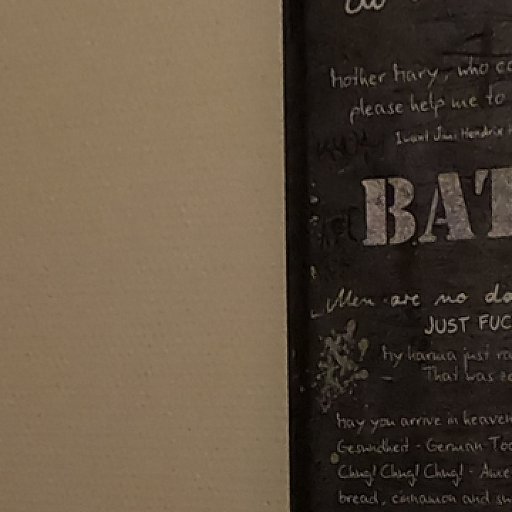 Mother Mary, who co
please help me to
I want Jimi Hendrix
BAT
Men are no do
JUST FUC
My karma just r
That was
May you arrive in heaven
Gesundheit - German Too
Chug! Chug! Chug! - Ame
bread, cinnamon and su